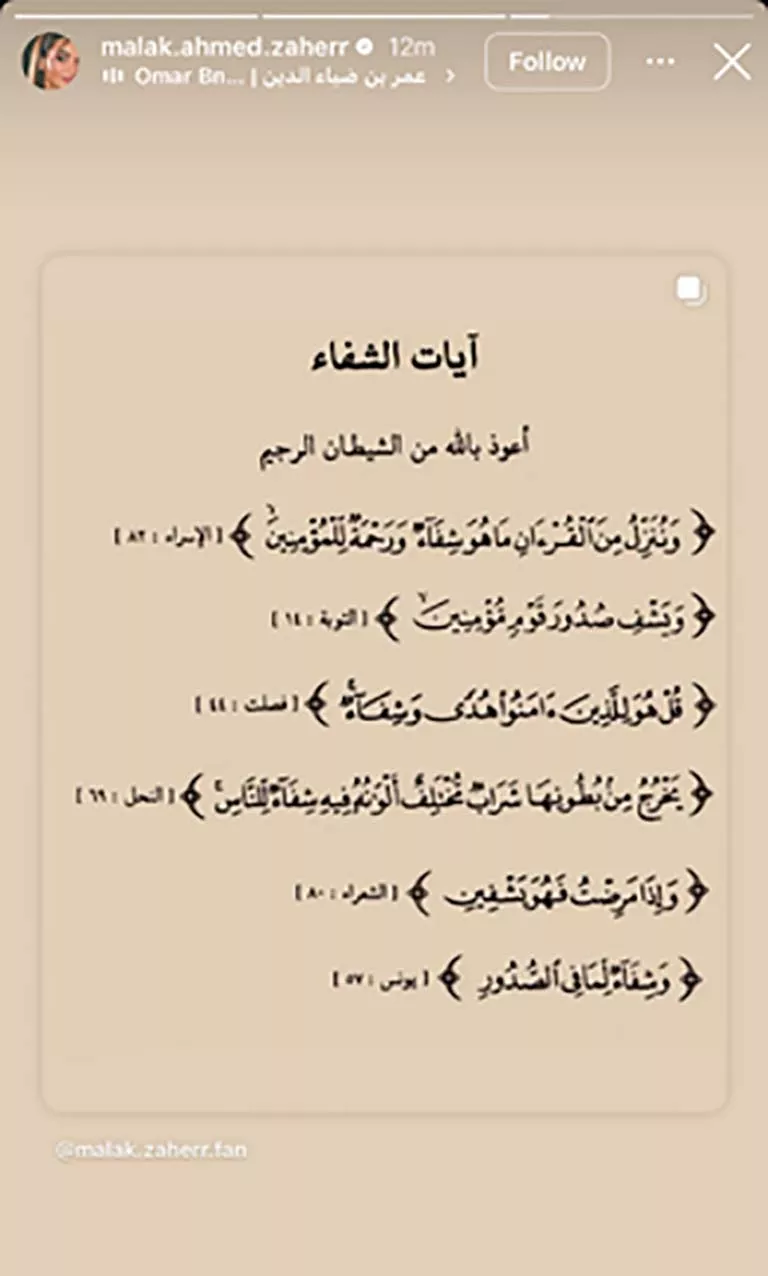 malak.ahmed.zaherr 12m
Omar Bn... | عمر بن ضياء الدين >
Follow
آيات الشفاء
أعوذ بالله من الشيطان الرجيم
﴿ وَنُنَزِّلُ مِنَ ٱلْقُرْءَانِ مَا هُوَ شِفَآءٌ وَرَحْمَةٌ لِّلْمُؤْمِنِينَ ۙ ﴾ [ الإسراء : ٨٢ ]
﴿ وَيَشْفِ صُدُورَ قَوْمٍ مُّؤْمِنِينَ ﴾ [ التوبة : ١٤ ]
﴿ قُلْ هُوَ لِلَّذِينَ ءَامَنُوا۟ هُدًى وَشِفَآءٌ ۖ ﴾ [ فصلت : ٤٤ ]
﴿ يَخْرُجُ مِنۢ بُطُونِهَا شَرَابٌ مُّخْتَلِفٌ أَلْوَٰنُهُۥ فِيهِ شِفَآءٌ لِّلنَّاسِ ۗ ﴾ [ النحل : ٦٩ ]
﴿ وَإِذَا مَرِضْتُ فَهُوَ يَشْفِينِ ﴾ [ الشعراء : ٨٠ ]
﴿ وَشِفَآءٌ لِّمَا فِى ٱلصُّدُورِ ﴾ [ يونس : ٥٧ ]
@malak.zaherr.fan